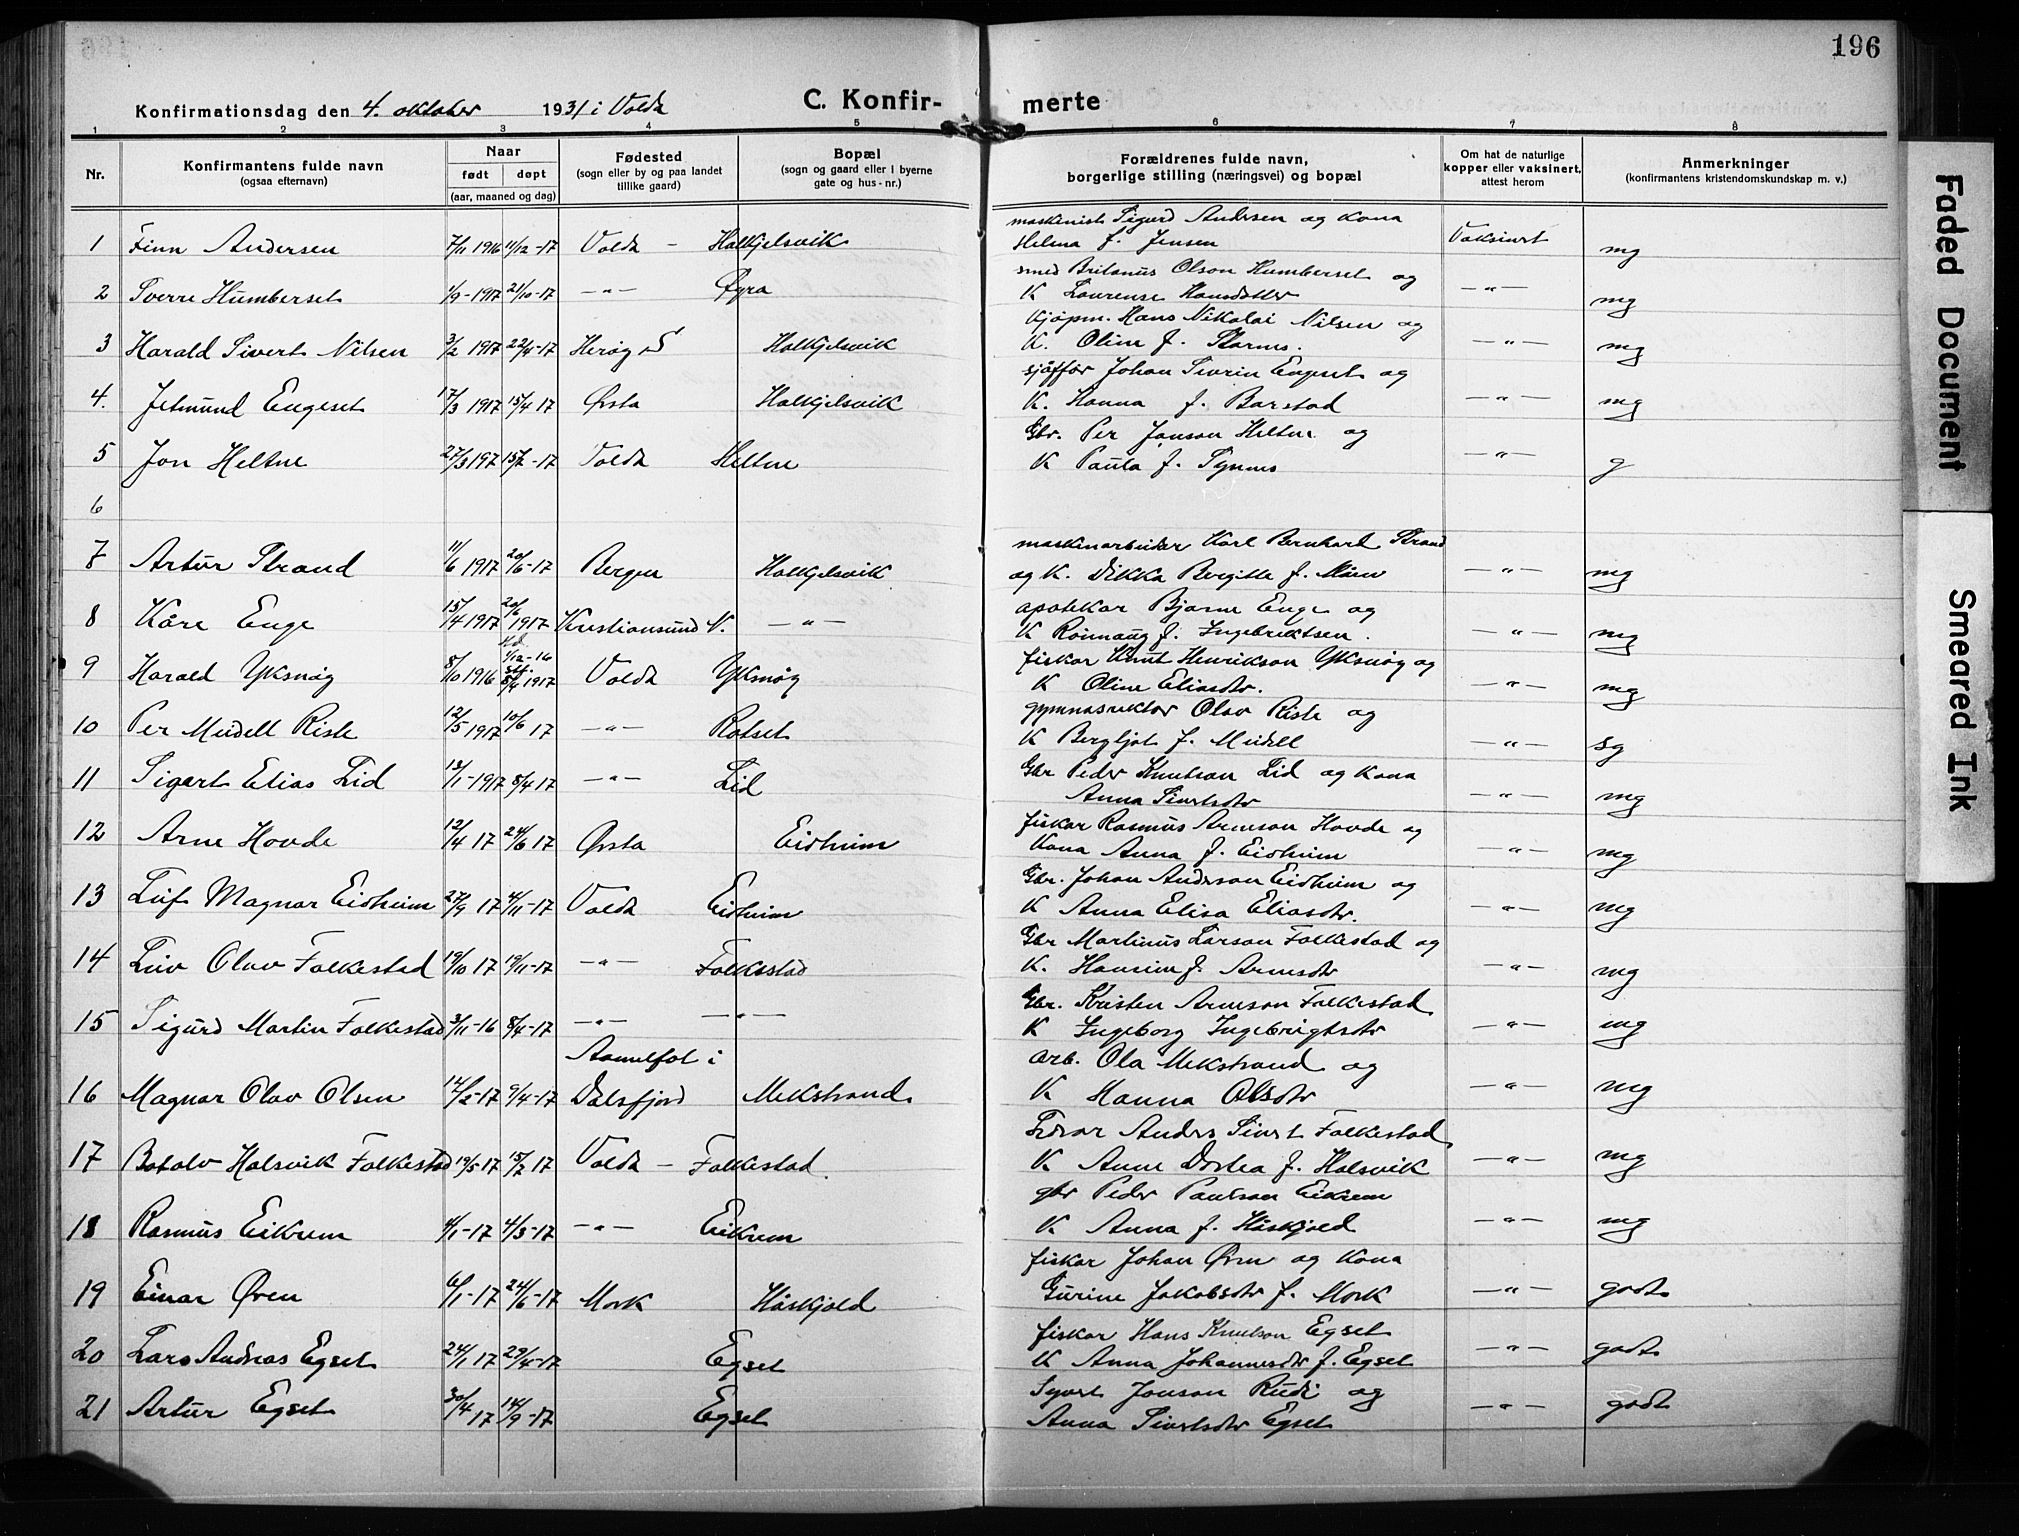 196
Konfirmationsdag den 4. oktober 1931 i Volda
C. Konfir- merte
1 2 3 4 5 6 7 8
Nr. Konfirmantens fulde navn (ogsaa efternavn) Naar født døpt (aar, maaned og dag) Fødested (sogn eller by og paa landet tillike gaard) Bopæl (sogn og gaard eller i byerne gate og hus-nr.) Forældrenes fulde navn, borgerlige stilling (næringsvei) og bopæl Om hat de naturlige kopper eller vaksinert, attest herom Anmerkninger (konfirmantens kristendomskundskap m. v.)
maskinist Sigurd Andersen og kona
1 Finn Andersen 7/11 1916 11/12-17 Volda – Halkjelsvik Helena f. Jensen Vaksinert mg
smed Britanus Olson Humberset og
2 Sverre Humberset 1/9-1917 21/10-17 -"- Øyra K Laurense Hansdotter -"- mg
Kjøpm. Hans Nikolai Nilsen og
3 Harald Sivert Nilsen 3/2 1917 22/4-17 Herøy S Halkjelsvik K. Oline f. -"- mg
sjåffør Johan Severin Engeset og
4. Jetmund Engeset 17/3 1917 15/4 17 Ørsta Halkjelsvik K. Hanna f. Barstad -"- mg
Gbr. Per Jonson Heltne og
5 Jon Heltne 27/3 197 15/7-17 Volda Heltne K Paula f. Synnes -"- g
6
maskinarbeider Karl Bernhart Strand
7 Artur Strand 11/6 1917 20/6-17 Bergen Halkjelsvik og K. Dikka Bergitte f. -"- mg
apotekar Bjarne Enge og
8 Kåre Enge 15/4 1917 20/6 1917 Kristiansund N. -"- K Rönnaug f. Ingebriktsen. -"- mg
fiskar Knut Henrikson Yksnøy og
9 Harald Yksnøy 8/10 1916 1/12-16 8/4 1917 Volda Yksnøy K Oline Eliasdtr. -"- mg
gymnasrektor Olav Riste og
10 Per Meidell Riste 12/5 1917 10/6 17 -"- Rotset K Bergljot f. Meidell -"- sg
Gbr Peder Knutson Lid og kona
11 Sigart Elias Lid 13/1-1917 8/4 17 -"- Lid Anna Sivertsdtr -"- mg
fiskar Rasmus Arneson Hovde og
12 Arne Hovde 12/4 17 24/6 17 Ørsta Eidheim Kona Anna f. Eidheim -"- mg
Gbr. Johan Anderson Eidheim og
13 Leif Magnar Eidheim 27/9 17 4/11-17 Volda Eidheim K Anna Elisa Eliasdtr. -"- mg
Gbr Martinus Larson Folkestad og
14 Leiv Olav Folkestad 19/10 17 19/11-17 -"- Folkestad K. Hansine f. Arnesdtr -"- mg
Gbr. Kristen Arneson Folkestad
15 Sigurd Martin Folkestad 3/11-16 8/4-17 -"- -"- K Ingeborg Ingebrigtsdtr -"- mg
Aamelfot i arb. Ola Mekstrand og
16 Magnar Olav Olsen 14/2-17 9/4-17 Dalsfjord Mekstrand K Hanna Olsdtr -"- mg
Anders Sivert Folkestad
17 Botolv Halsvik Folkestad 19/5 17 15/7 17 Volda – Folkestad. K Anne Dortea f. Halsvik -"- mg
gbr Peder Paulson Eikrem
18 Rasmus Eikrem 4/1-17 4/3-17 -"- Eikrem K Anna f. Håskjold -"- mg
fiskar Johan Ören og kona
19 Einar Ören 6/1-17 24/6-17 Mork Håskjold Gurine Jakobsdtr f. Mork -"- godt
fiskar Hans Knutson Egset
20 Lars Andreas Egset 24/1 17 29/4-17 Egset K Anna Johannesdtr f. Egset -"- godt
Syvert Jonson Rudi og
21 Artur Egset 30/4 17 14/9-17 Egset Anna Sivertsdtr Egset -"- godt
Faded Document
Smeared Ink